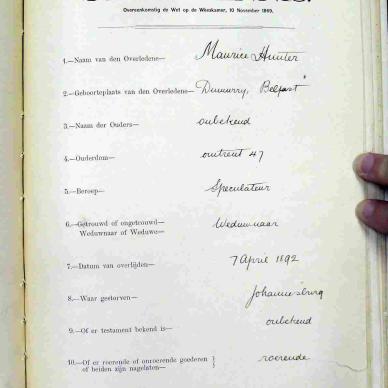 Overeenkomstig de Wet op de Weeskamer, 10 November 1869.
1.—Naam van den Overledene— Maurice Hunter
2.—Geboorteplaats van den Overledene— Dunmurry, Belfast
3.—Naam der Ouders— onbekend
4.—Ouderdom— omtrent 47
5.—Beroep— Speculateur
6.—Getrouwd of ongetrouwd—
Weduwnaar of Weduwe— Weduwnaar
7.—Datum van overlijden— 7 April 1892
8.—Waar gestorven— Johannesburg
9.—Of er testament bekend is— onbekend
10.—Of er roerende of onroerende goederen
of beiden zijn nagelaten— roerende